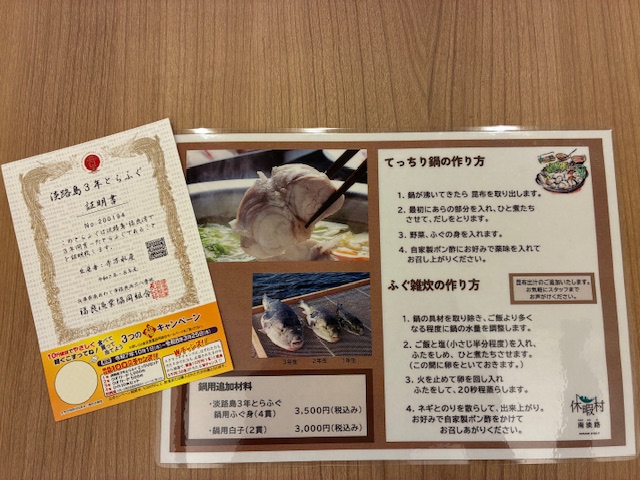 淡路島3年とらふぐ
証明書
No.200194
福良漁業協同組合
10円硬貨でやさしく
軽くこすってね!
3つの
キャンペーン
てっちり鍋の作り方
1. 鍋が沸いてきたら 昆布を取り出します。
2. 最初にあらの部分を入れ、ひと煮たち
させて、だしをとります。
3. 野菜、ふぐの身を入れます。
4. 自家製ポン酢にお好みで薬味を入れて
お召し上がりください。
ふぐ雑炊の作り方
昆布出汁のご追加いたします。
お気軽にスタッフまで
お声がけください。
1. 鍋の具材を取り除き、ご飯より多く
なる程度に鍋の水量を調整します。
2. ご飯と塩(小さじ半分程度)を入れ、
ふたをしめ、ひと煮たちさせます。
(この間に卵をといておきます。)
3. 火を止めて卵を回し入れ
ふたをして、20秒程蒸らします。
4. ネギとのりを散らして、出来上がり。
お好みで自家製ポン酢をかけて
お召しあがりください。
3年生 2年生 1年生
鍋用追加材料
・淡路島3年とらふぐ
鍋用ふぐ身(4貫) 3,500円(税込み)
・鍋用白子(2貫) 3,000円(税込み)
休暇村
南淡路